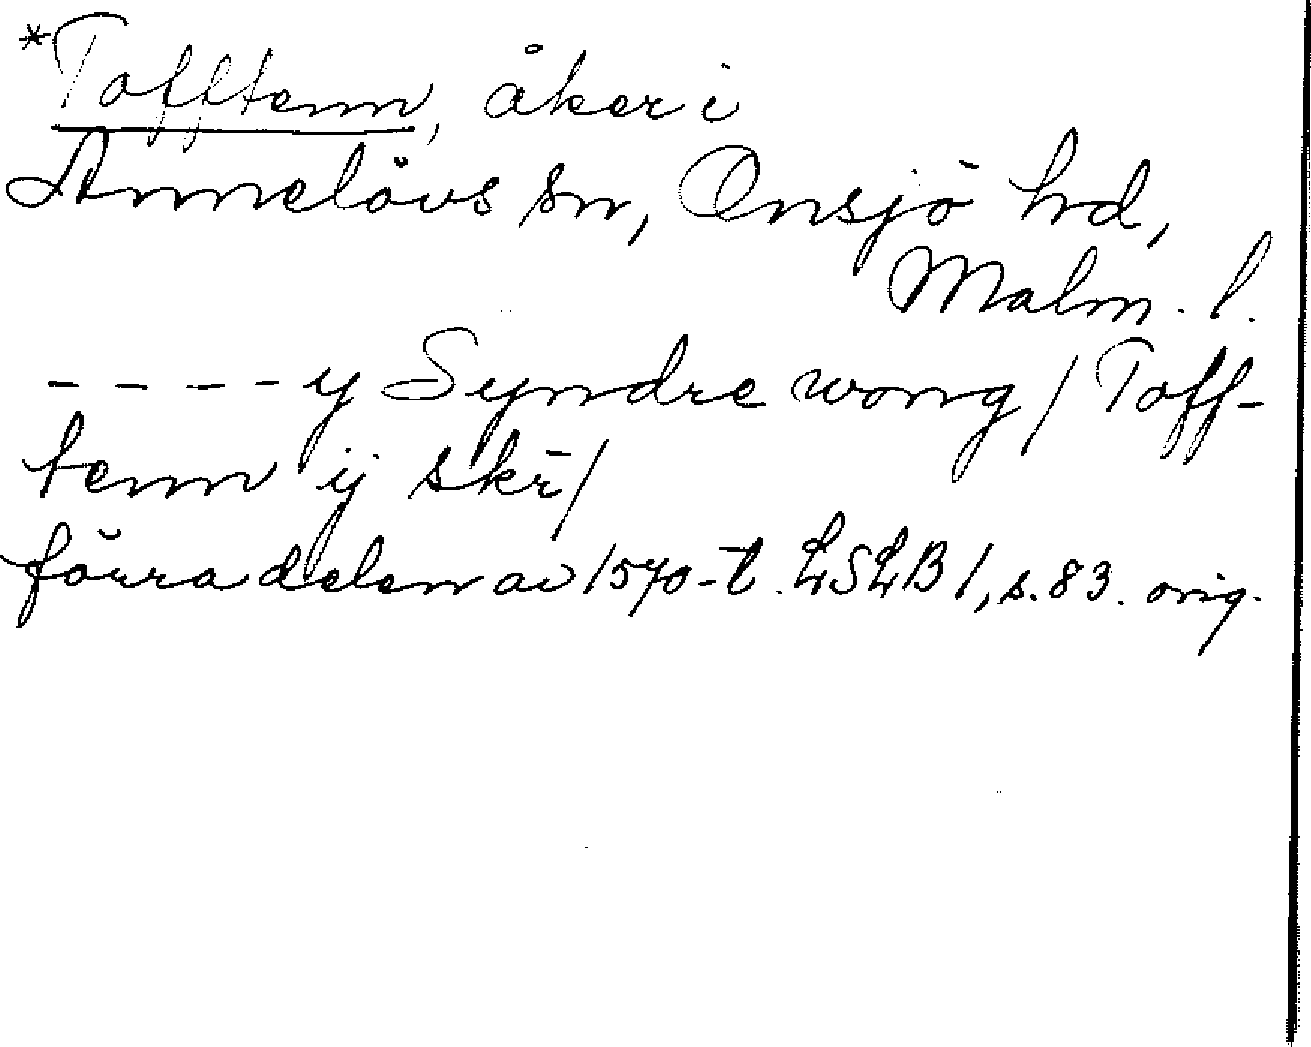 *Tofftenn, åker i
Annelövs sn, Onsjö hd,
Malm. l.
- - - - y Syndre wong / Toff-
tenn ij skr̄ /
förra delen av 1570-t. LSLB 1, s. 83. orig.